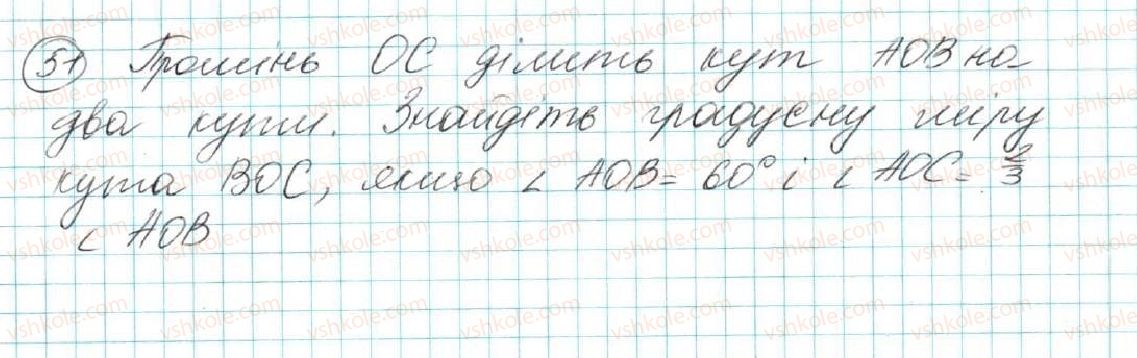 51 Промінь OC ділить кут AOB на
два кути. Знайдіть градусну міру
кута BOC, якщо ∠ AOB = 60° і ∠ AOC = 2/3
∠ AOB